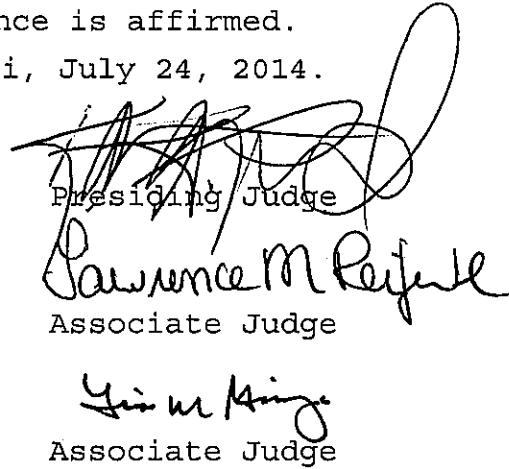 nce is affirmed.
i, July 24, 2014.
Presiding Judge
Lawrence M Reifurth
Associate Judge
Associate Judge